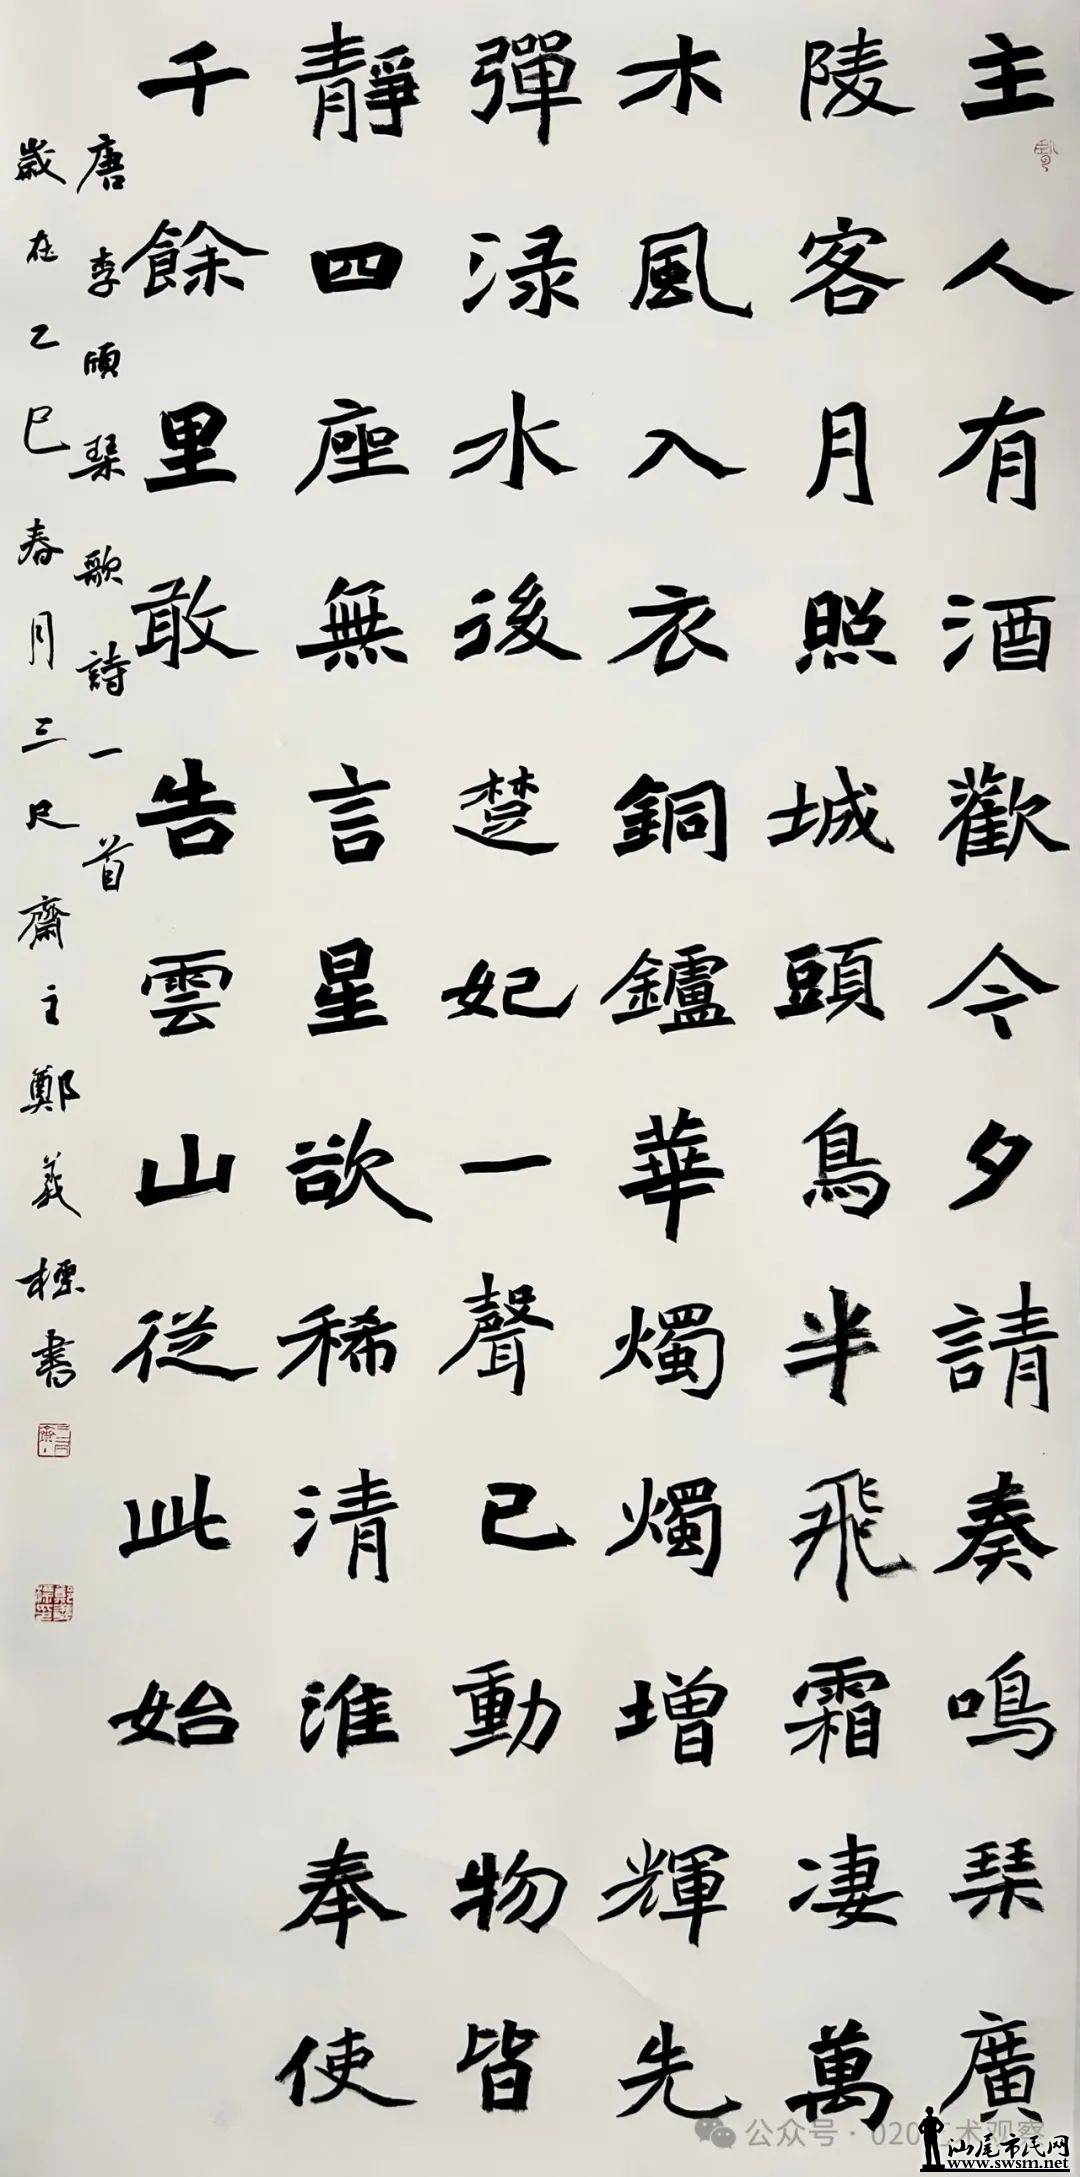 主人有酒歡今夕請奏鳴琹廣
陵客月照城頭鳥半飛霜凄萬
木風入衣銅鑪華燭燭增輝先
彈渌水後楚妃一聲已動物皆
靜四座無言星欲稀清淮奉使
千餘里敢告雲山從此始
唐李頎琹歌詩一首
歲在乙巳春月三尺齋主鄭義標書
公众号·020艺术观察
汕尾市民网
www.swsm.net